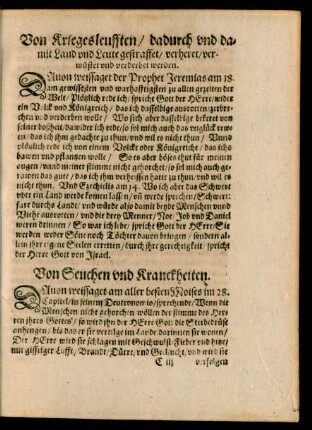 Von Kriegesleufften / dadurch vnd da-
mit Land vnd Leute gestraffet / verheret / ver-
wüstet vnd verderbet werden.
DAuon weissaget der Prophet Jeremias am 18.
am gewissesten vnd warhafftigsten zu allen gezeiten der
Welt / Plötzlich rede ich / spricht Gott der HErre / wider
ein Volck vnd Königreich / das ich dasselbige ausrotten / zerbre-
chen vnd verderben wolle / Wo sich aber dasselbige bekeret von
seiner bosheit / dawider ich rede / so sol mich auch das vnglück rew-
en / das ich jhm gedachte zu thun / vnd wil es nicht thun / Vnnd
plötzlich rede ich von einem Volcke oder Königreich / das ichs
bawen vnd pflantzen wolle / So es aber böses thut für meinen
augen / vnnd meiner stimme nicht gehorchet / so sol mich auch ge-
rawen das gute / das ich jhm gethan hatte zu thun / vnd wil es
nicht thun. Vnd Ezechielis am 14. Wo ich aber das Schwert
vber ein Land werde komen lassen / vñ werde sprechen / Schwert
far durchs Land / vnd würde also damit beyde Menschen vnd
Viehe ausrotten / vnd die drey Menner / Noe Job vnd Daniel
weren drinnen / So war ich lebe / spricht Gott der HErre / Sie
werden weder Söne noch Töchter dauon bringen / sondern al-
lein jhre eigene Seelen erretten / durch jhre gerechtigkeit / spricht
der Herre Gott von Israel.
Von Seuchen vnd Kranckheiten.
DAuon weissaget am aller besten Moises im 28.
Capitel / in seinem Deutronomio / sprechende / Wenn die
Menschen nicht gehorchen wöllen der stimme des Her-
ren jhres Gottes / so wird jhn der HErre Got die Sterbedrüse
anhengen / bis das er sie vertilge im Lande darinnen sie wonen /
Der HErre wird sie schlagen mit Geschwulst / Fieber vnd hitze /
mit gifftiger Lufft / Brandt / Dürre vnd vnd wird sie
C iij verfolgen